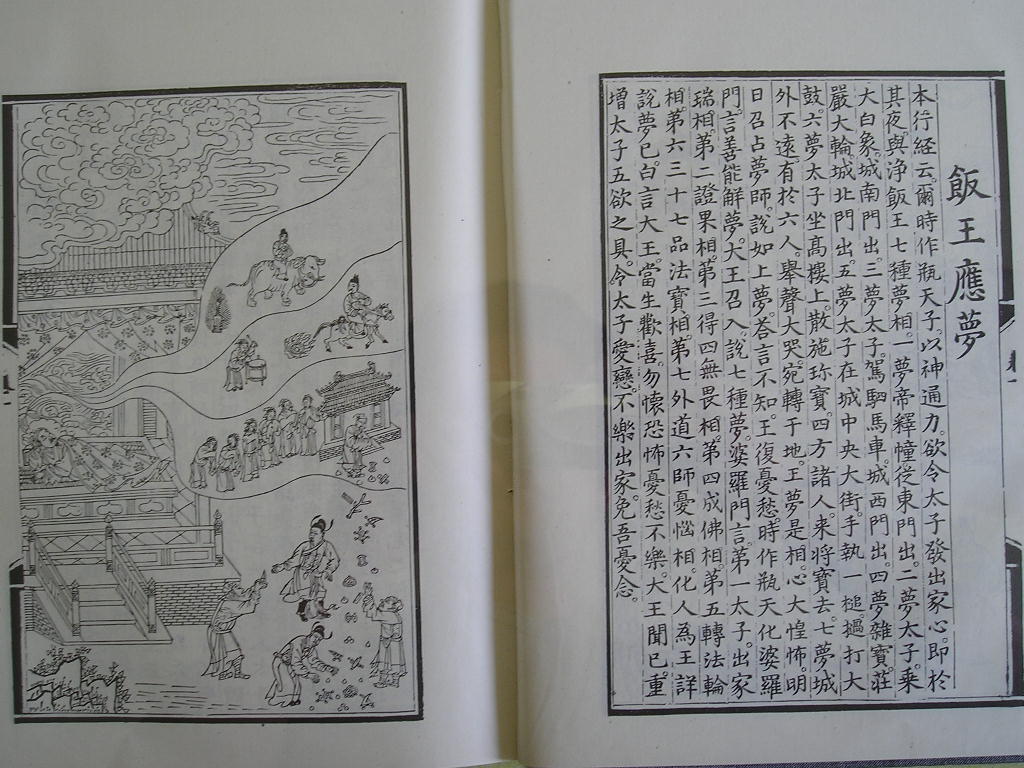 飯王應夢
本行経云。爾時作瓶天子。以神通力。欲令太子發出家心。即於
其夜。與淨飯王七種夢相。一夢帝釋幢從東門出。二夢太子乘
大白象。城南門出。三夢太子駕駟馬車。城西門出。四夢雜寶莊
嚴大輪。城北門出。五夢太子在城中央大街。手執一槌。撾打大
鼓。六夢太子坐髙樓上。散施珎寶。四方諸人。来將寶去。七夢城
外不遠。有於六人。舉聲大哭。宛轉于地。王夢是相。心大惶怖。明
日召占夢師。説如上夢。荅言不知。王復憂愁。時作瓶天化婆羅
門。言善能解夢。大王召入。說七種夢。婆羅門言。第一太子出家
瑞相。第二證果相。第三得四無畏相。第四成佛相。第五轉法輪
相。第六三十七品法寶相。第七外道六師憂惱相。化人為王詳
說夢已。白言大王。當生歡喜。勿懷恐怖憂愁不樂。大王聞已。重
增太子五欲之具。令太子愛戀。不樂出家。免吾憂念。